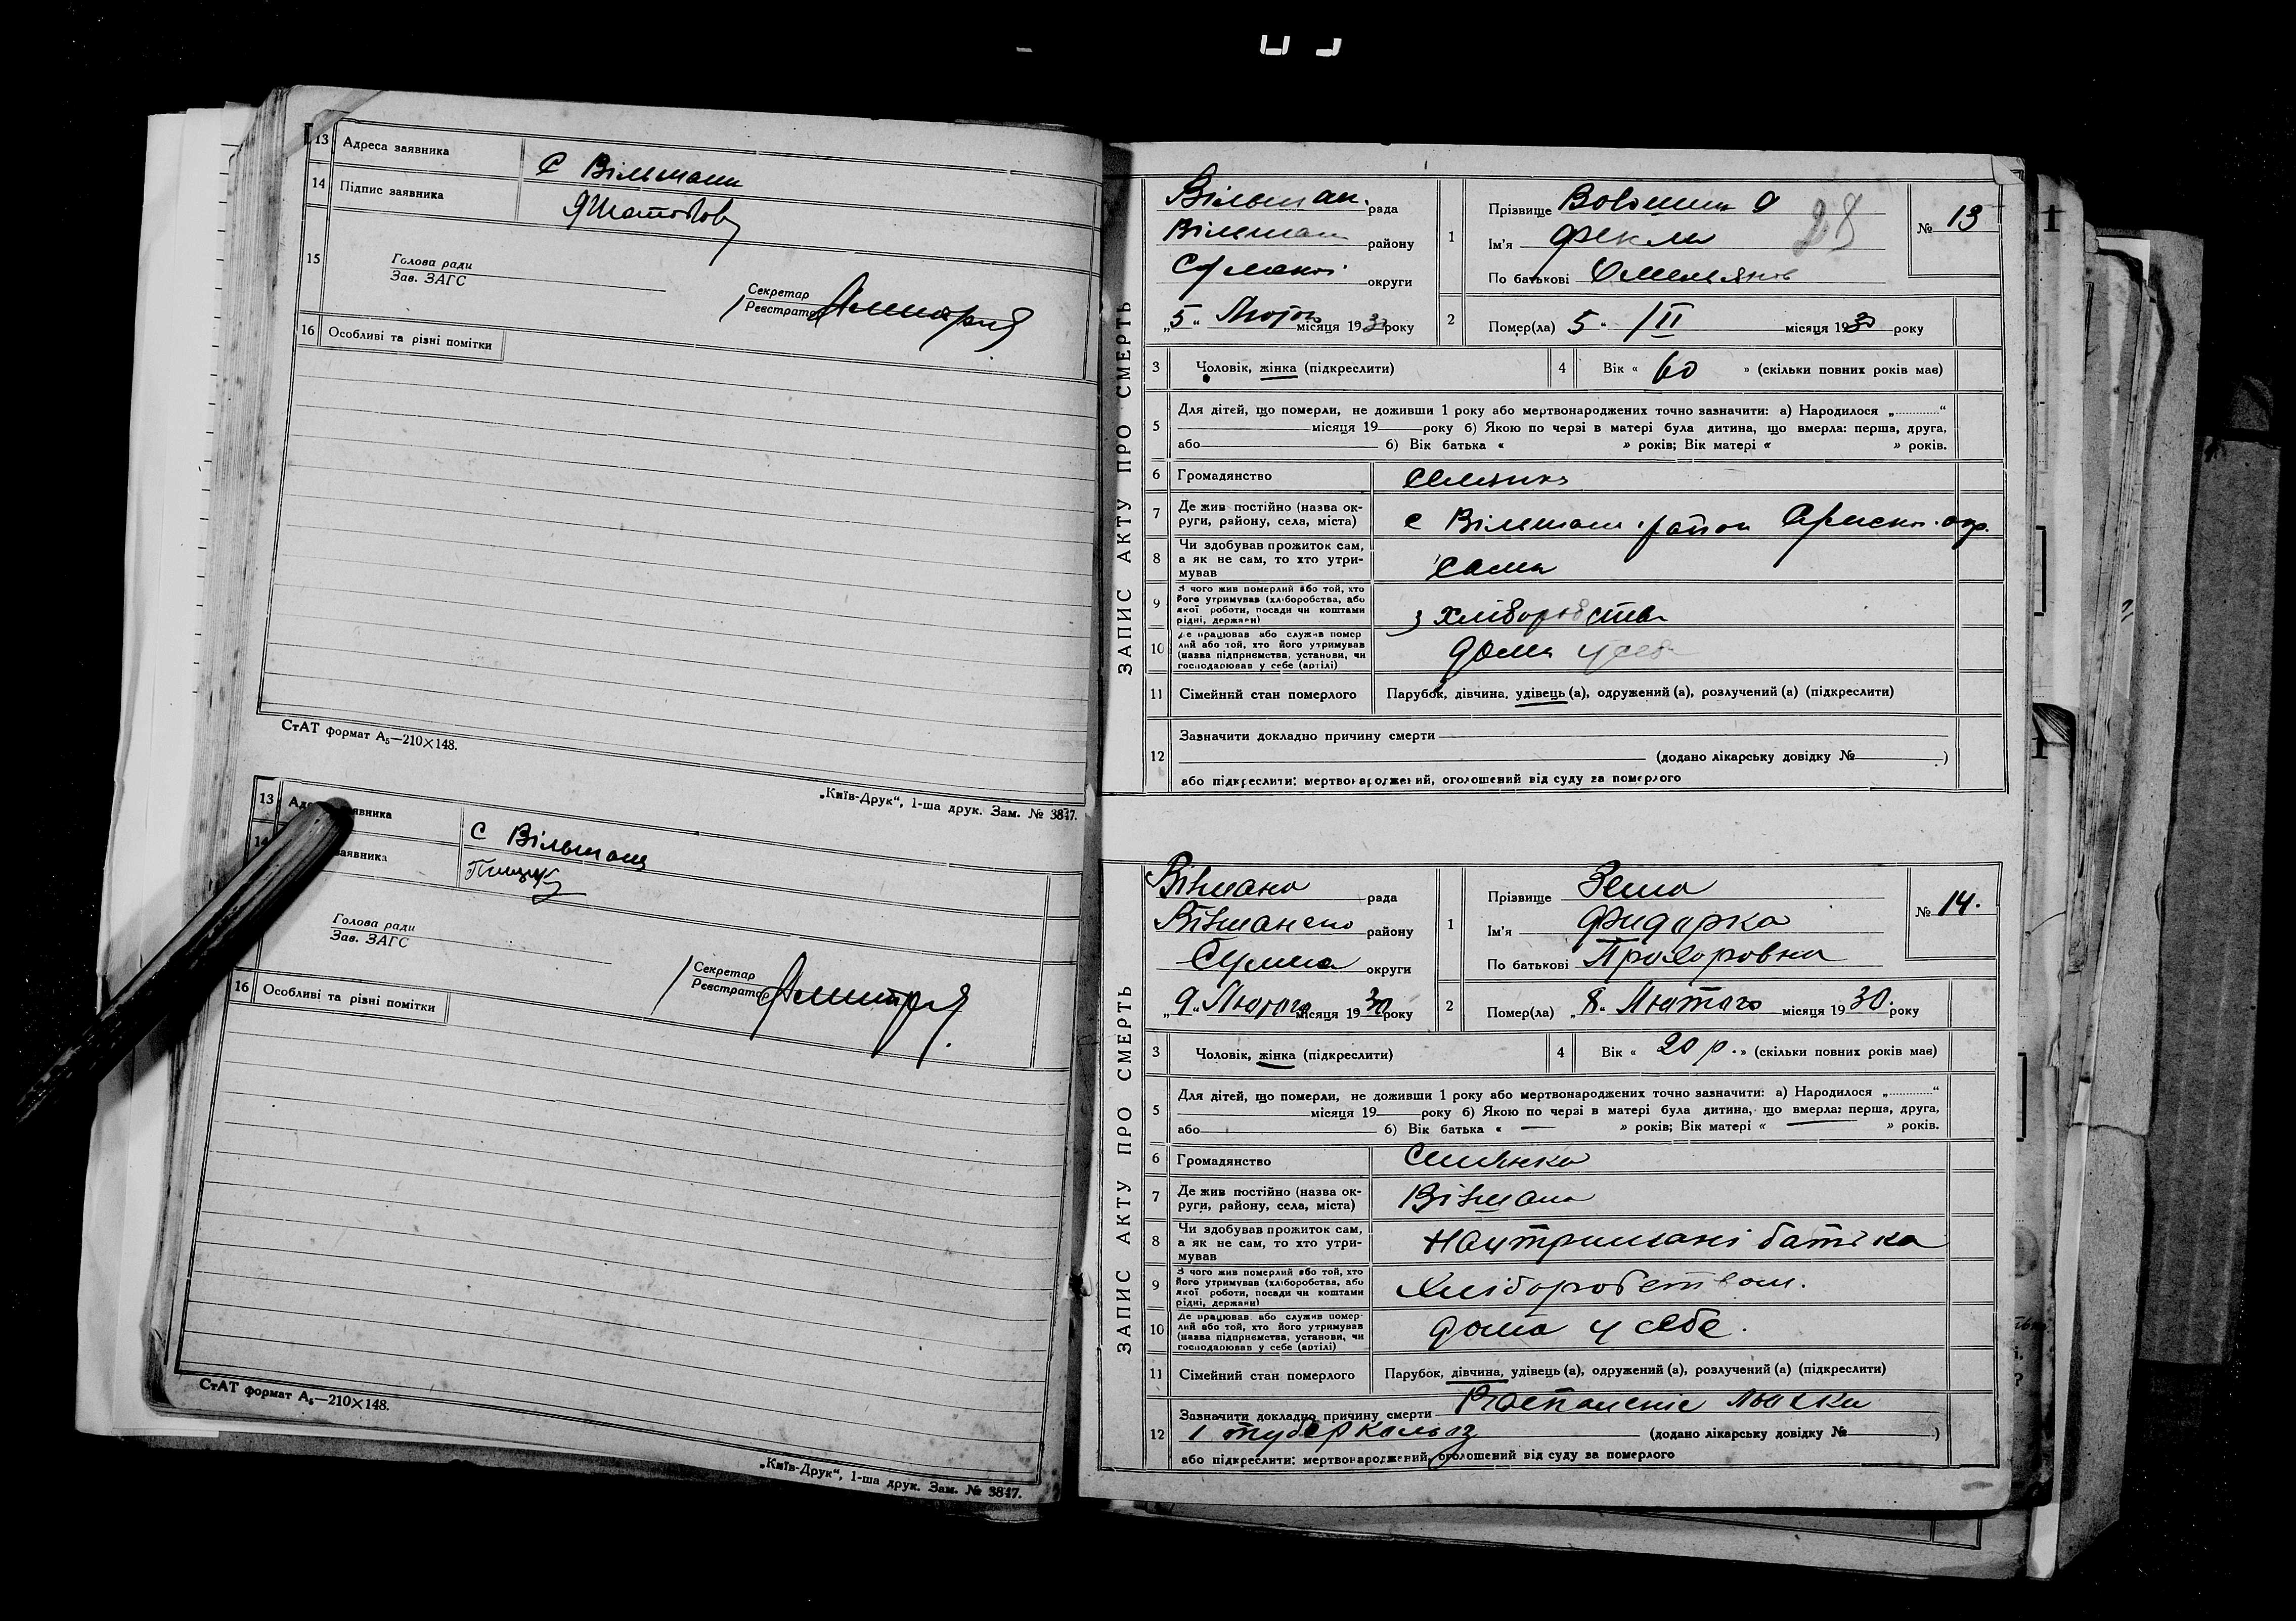 13 Адреса заявника С Вільшани
14 Підпис заявника
15 Голова ради
Зав. ЗАГС
Секретар
Реєстратор
16 Особливі та різні помітки
СтАТ формат А₅—210×148.
„Київ-Друк“, 1-ша друк. Зам. № 3847.
13 явника С Вільшана
14 заявника
Голова ради
Зав. ЗАГС
Секретар
Реєстратор
16 Особливі та різні помітки
СтАТ формат А₅—210×148.
„Київ-Друк“, 1-ша друк. Зам. № 3847.
ЗАПИС АКТУ ПРО СМЕРТЬ
Вільшан. рада
Вільшан району
округи
„5“ місяця 1930 року
1 Прізвище
28
Ім'я Фекла
По батькові
№ 13
2 Помер(ла) 5 /II місяця 1930 року
3 Чоловік, жінка (підкреслити)
4 Вік « 60 » (скільки повних років має)
5 Для дітей, що померли, не доживши 1 року або мертвонароджених точно зазначити: а) Народилося „............“
місяця 19 року б) Якою по черзі в матері була дитина, що вмерла: перша, друга,
або 6) Вік батька « » років; Вік матері « » років.
6 Громадянство
7 Де жив постійно (назва ок-
руги, району, села, міста) с Вільшан. район
8 Чи здобував прожиток сам,
а як не сам, то хто утри-
мував сама
9 З чого жив померлий або той, хто
його утримував (хліборобства, або
якої роботи, посади чи коштами
рідні, держави) з хліборобства
10 Де працював або служив помер
лий або той, хто його утримував
(назва підприємства, установи, чи
господарював у себе (артілі) дома у себе
11 Сімейний стан померлого Парубок, дівчина, удівець (а), одружений (а), розлучений (а) (підкреслити)
12 Зазначити докладно причину смерти
(додано лікарську довідку № )
або підкреслити: мертвонароджений, оголошений від суду за померлого
ЗАПИС АКТУ ПРО СМЕРТЬ
рада
району
округи
„9“ Лютого місяця 1930 року
1 Прізвище
Ім'я Фидорка
По батькові Прохоровна
№ 14.
2 Помер(ла) „8“ Лютого місяця 1930. року
3 Чоловік, жінка (підкреслити)
4 Вік « 20 р. » (скільки повних років має)
5 Для дітей, що померли, не доживши 1 року або мертвонароджених точно зазначити: а) Народилося „............“
місяця 19 року б) Якою по черзі в матері була дитина, що вмерла: перша, друга,
або 6) Вік батька « — » років; Вік матері « — » років.
6 Громадянство
7 Де жив постійно (назва ок-
руги, району, села, міста)
8 Чи здобував прожиток сам,
а як не сам, то хто утри-
мував на утримані батька
9 З чого жив померлий або той, хто
його утримував (хліборобства, або
якої роботи, посади чи коштами
рідні, держави) Хліборобством.
10 Де працював або служив помер-
лий або той, хто його утримував
(назва підприємства, установи, чи
господарював у себе (артілі) дома у себе.
11 Сімейний стан померлого Парубок, дівчина, удівець (а), одружений (а), розлучений (а) (підкреслити)
12 Зазначити докладно причину смерти
і туберкальоз (додано лікарську довідку № )
або підкреслити: мертвонароджений, оголошений від суду за померлого